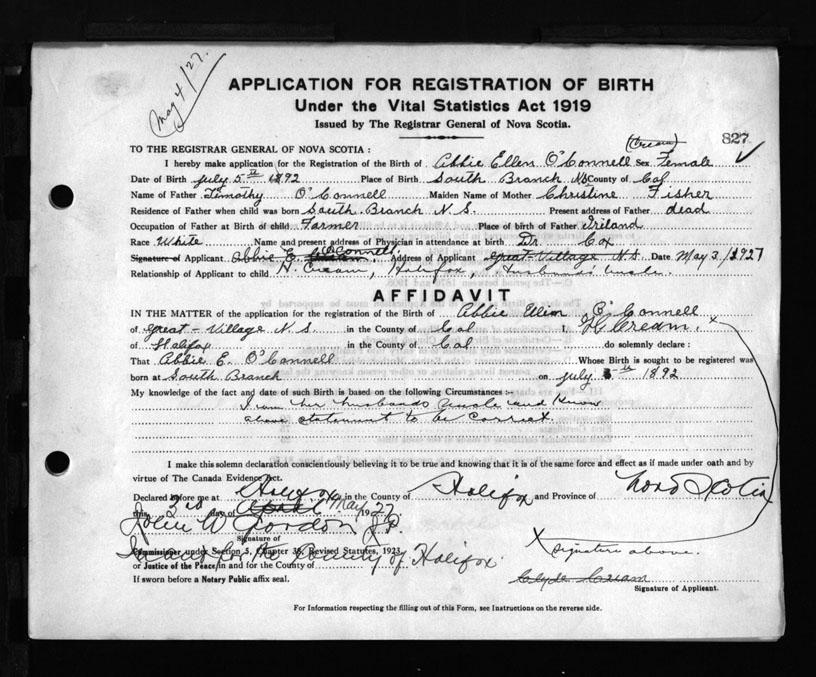 May 4/27.
APPLICATION FOR REGISTRATION OF BIRTH
Under the Vital Statistics Act 1919
Issued by The Registrar General of Nova Scotia.
827
(Cream)
TO THE REGISTRAR GENERAL OF NOVA SCOTIA :
I hereby make application for the Registration of the Birth of Abbie Ellen O'Connell Sex Female
Date of Birth July 5th 1892 Place of Birth South Branch NS County of Col
Name of Father Timothy O'Connell Maiden Name of Mother Christine Fisher
Residence of Father when child was born South Branch N.S. Present address of Father dead
Occupation of Father at Birth of child Farmer Place of birth of Father Irland
Race White Name and present address of Physician in attendance at birth Dr. Cox
Signature of Applicant Abbie E. O'Connell, Address of Applicant Great Village N.S. Date May 3/1927
Relationship of Applicant to child H. Cream, Halifax, Husbands' Uncle.
AFFIDAVIT
IN THE MATTER of the application for the registration of the Birth of Abbie Ellen O'Connell
of Great-Village N S in the County of Col I, H Cream. x
of Halifax in the County of Col do solemnly declare :
That Abbie E. O'Connell Whose Birth is sought to be registered was
born at South Branch on July 5th 1892
My knowledge of the fact and date of such Birth is based on the following Circumstances :-
I am her husbands Uncle and know
above statement to be Correct.
I make this solemn declaration conscientiously believing it to be true and knowing that it is of the same force and effect as if made under oath and by
virtue of The Canada Evidence Act.
Declared before me at Halifax in the County of Halifax and Province of Nova Scotia
this 3rd day of April May 1927.
John W Gordon J.P.
Signature of
Commissioner under Section 5, Chapter 36, Revised Statutes, 1923
In and for the County of Halifax.
X signature above.
or Justice of the Peace in and for the County of
If sworn before a Notary Public affix seal.
Clyde Cream
Signature of Applicant.
For Information respecting the filling out of this Form, see Instructions on the reverse side.